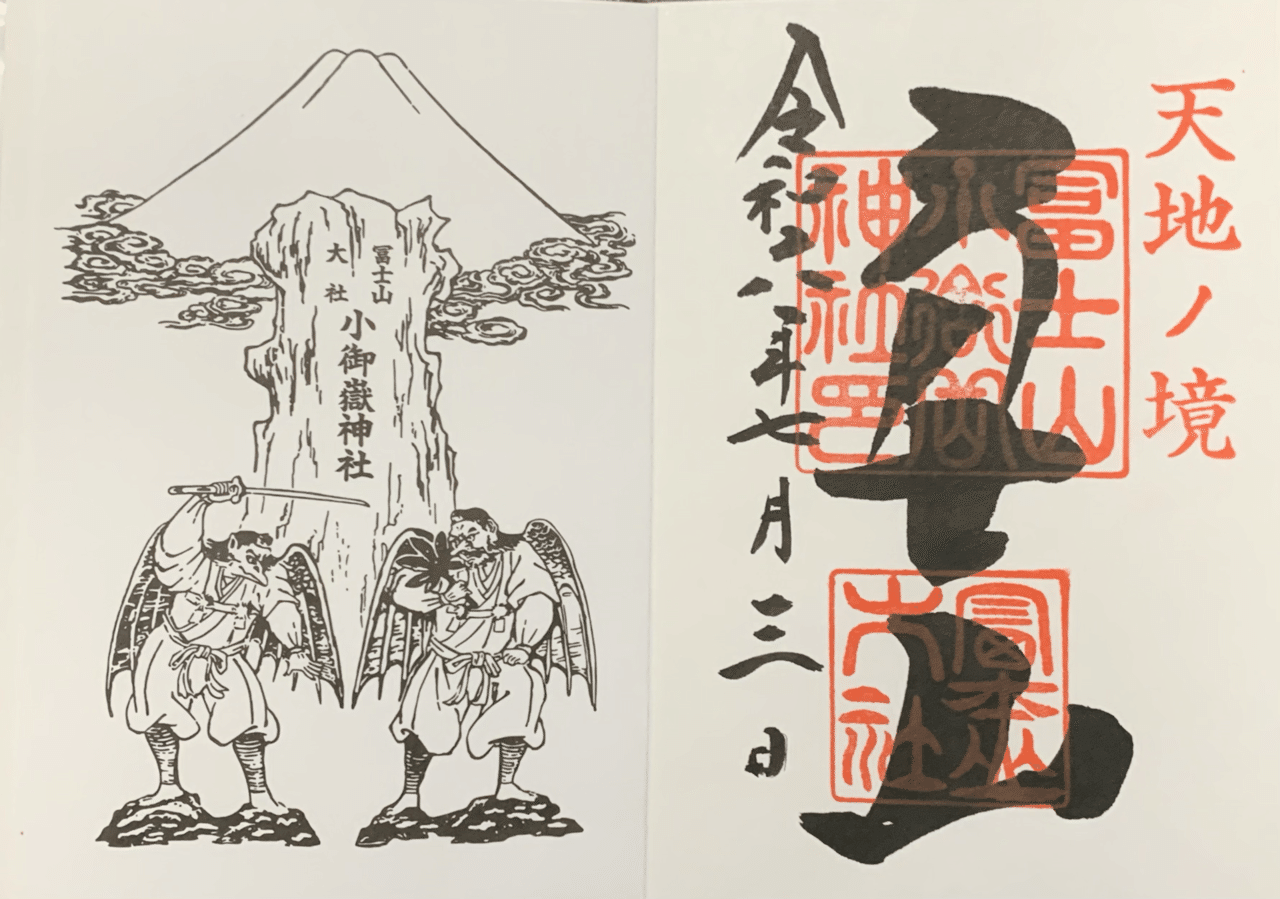 天地ノ境
冨士山
冨士山
小御嶽
神社印
大社
令和八年七月三日
冨士山
大社
小御嶽神社